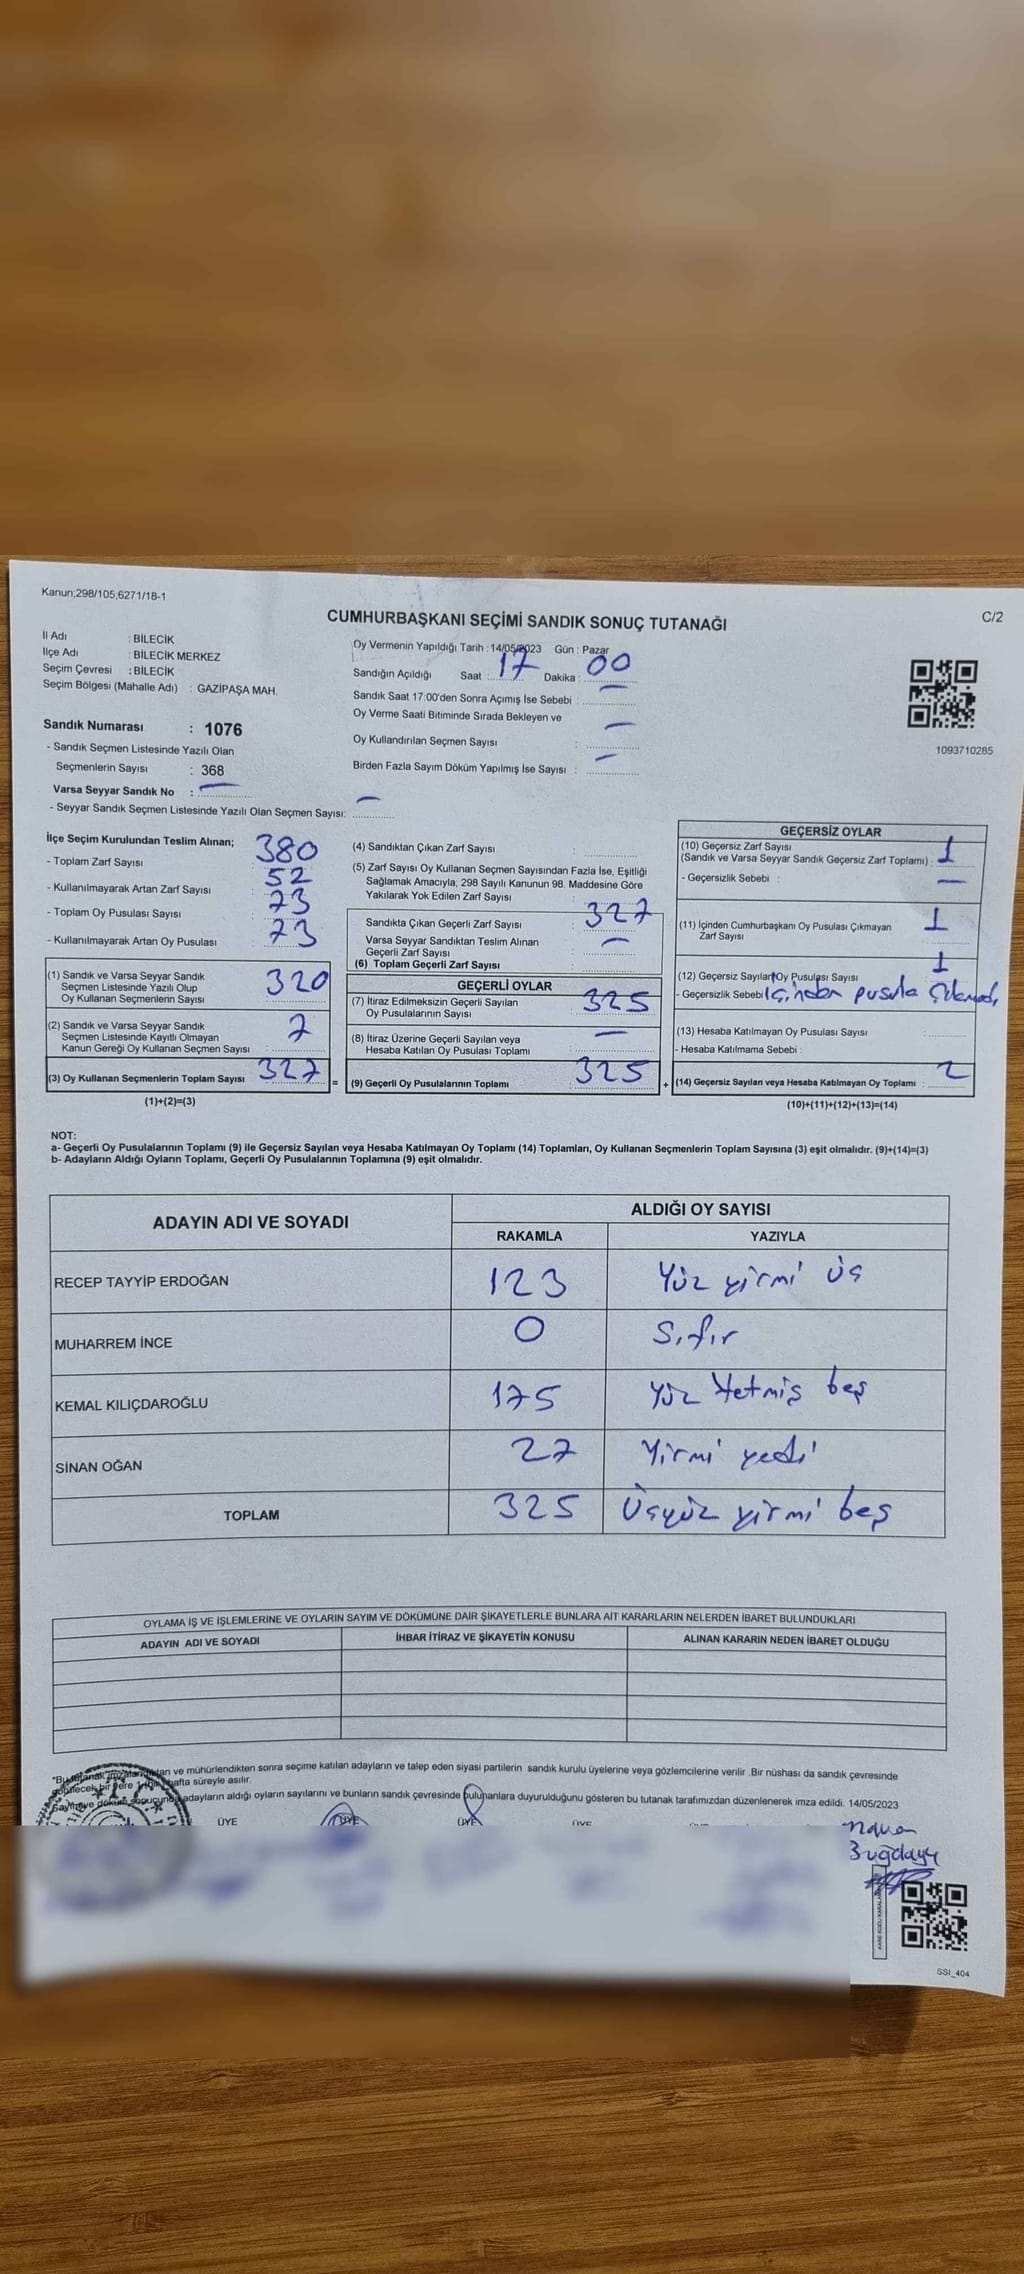 Kanun;298/105;6271/18-1
CUMHURBAŞKANI SEÇİMİ SANDIK SONUÇ TUTANAĞI
C/2
İl Adı : BİLECİK
İlçe Adı : BİLECİK MERKEZ
Seçim Çevresi : BİLECİK
Seçim Bölgesi (Mahalle Adı) : GAZİPAŞA MAH.
Oy Vermenin Yapıldığı Tarih : 14/05/2023 Gün : Pazar
Sandığın Açıldığı Saat : 17 Dakika : 00
Sandık Saat 17:00'den Sonra Açımış İse Sebebi : —
Oy Verme Saati Bitiminde Sırada Bekleyen ve
Oy Kullandırılan Seçmen Sayısı : —
Birden Fazla Sayım Döküm Yapılmış İse Sayısı : —
1093710285
Sandık Numarası : 1076
- Sandık Seçmen Listesinde Yazılı Olan
Seçmenlerin Sayısı : 368
Varsa Seyyar Sandık No : —
- Seyyar Sandık Seçmen Listesinde Yazılı Olan Seçmen Sayısı: —
İlçe Seçim Kurulundan Teslim Alınan;
- Toplam Zarf Sayısı : 380
- Kullanılmayarak Artan Zarf Sayısı : 52
- Toplam Oy Pusulası Sayısı : 73
- Kullanılmayarak Artan Oy Pusulası : 73
(1) Sandık ve Varsa Seyyar Sandık
Seçmen Listesinde Yazılı Olup
Oy Kullanan Seçmenlerin Sayısı : 320
(2) Sandık ve Varsa Seyyar Sandık
Seçmen Listesinde Kayıtlı Olmayan
Kanun Gereği Oy Kullanan Seçmen Sayısı : 7
(3) Oy Kullanan Seçmenlerin Toplam Sayısı : 327
(1)+(2)=(3)
(4) Sandıktan Çıkan Zarf Sayısı :
(5) Zarf Sayısı Oy Kullanan Seçmen Sayısından Fazla İse, Eşitliği
Sağlamak Amacıyla; 298 Sayılı Kanunun 98. Maddesine Göre
Yakılarak Yok Edilen Zarf Sayısı :
Sandıkta Çıkan Geçerli Zarf Sayısı : 327
Varsa Seyyar Sandıktan Teslim Alınan
Geçerli Zarf Sayısı : —
(6) Toplam Geçerli Zarf Sayısı :
GEÇERLİ OYLAR
(7) İtiraz Edilmeksizin Geçerli Sayılan
Oy Pusulalarının Sayısı : 325
(8) İtiraz Üzerine Geçerli Sayılan veya
Hesaba Katılan Oy Pusulası Toplamı : —
= (9) Geçerli Oy Pusulalarının Toplamı : 325 +
GEÇERSİZ OYLAR
(10) Geçersiz Zarf Sayısı
(Sandık ve Varsa Seyyar Sandık Geçersiz Zarf Toplamı) : 1
- Geçersizlik Sebebi : —
(11) İçinden Cumhurbaşkanı Oy Pusulası Çıkmayan
Zarf Sayısı : 1
(12) Geçersiz Sayılan Oy Pusulası Sayısı : 1
- Geçersizlik Sebebi : içinden pusula çıkmadı
(13) Hesaba Katılmayan Oy Pusulası Sayısı :
- Hesaba Katılmama Sebebi :
(14) Geçersiz Sayılan veya Hesaba Katılmayan Oy Toplamı : 2
(10)+(11)+(12)+(13)=(14)
NOT:
a- Geçerli Oy Pusulalarının Toplamı (9) ile Geçersiz Sayılan veya Hesaba Katılmayan Oy Toplamı (14) Toplamları, Oy Kullanan Seçmenlerin Toplam Sayısına (3) eşit olmalıdır. (9)+(14)=(3)
b- Adayların Aldığı Oyların Toplamı, Geçerli Oy Pusulalarının Toplamına (9) eşit olmalıdır.
ADAYIN ADI VE SOYADI
ALDIĞI OY SAYISI
RAKAMLA YAZIYLA
RECEP TAYYİP ERDOĞAN 123 Yüz yirmi üç
MUHARREM İNCE 0 Sıfır
KEMAL KILIÇDAROĞLU 175 Yüz Yetmiş beş
SİNAN OĞAN 27 Yirmi yedi
TOPLAM 325 Üçyüz yirmi beş
OYLAMA İŞ VE İŞLEMLERİNE VE OYLARIN SAYIM VE DÖKÜMÜNE DAİR ŞİKAYETLERLE BUNLARA AİT KARARLARIN NELERDEN İBARET BULUNDUKLARI
ADAYIN ADI VE SOYADI İHBAR İTİRAZ VE ŞİKAYETİN KONUSU ALINAN KARARIN NEDEN İBARET OLDUĞU
ve mühürlendikten sonra seçime katılan adayların ve talep eden siyasi partilerin sandık kurulu üyelerine veya gözlemcilerine verilir .Bir nüshası da sandık çevresinde
hafta süreyle asılır.
adayların aldığı oyların sayılarını ve bunların sandık çevresinde bulunanlara duyurulduğunu gösteren bu tutanak tarafımızdan düzenlenerek imza edildi. 14/05/2023
ÜYE ÜYE ÜYE ÜYE
Buğdaycı
SSI_404